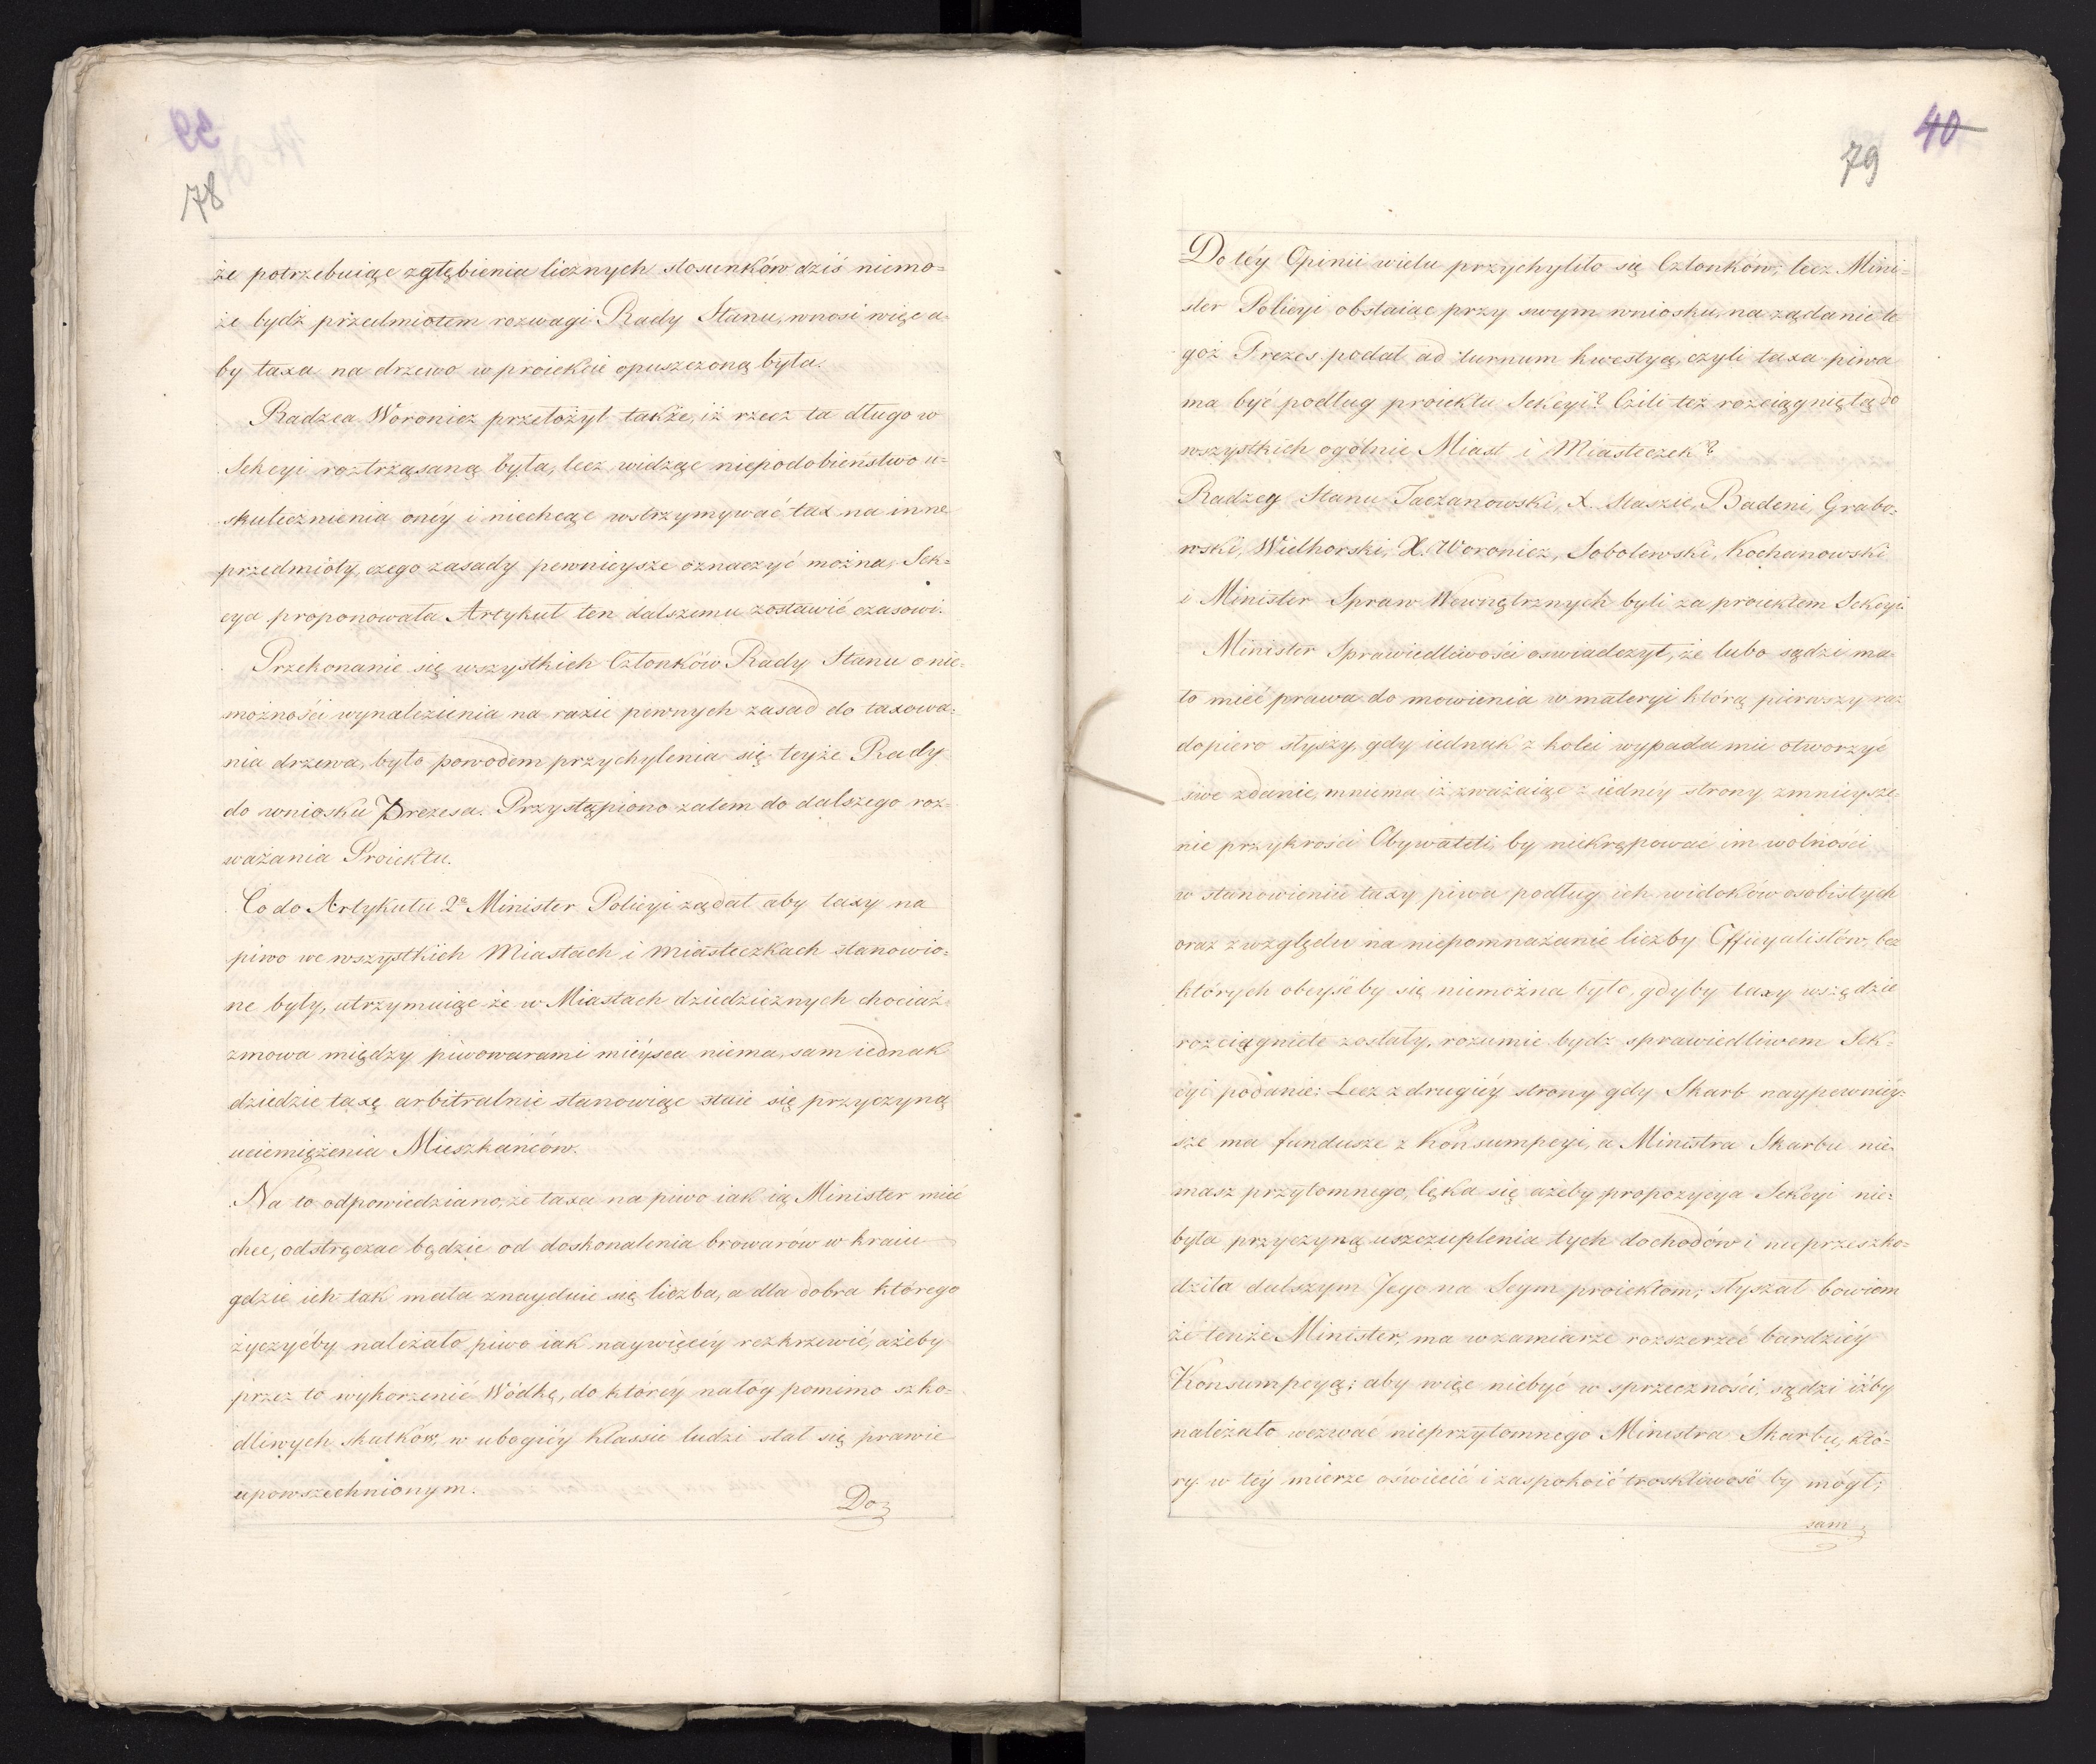 78
że potrzebuiąc zgłębienia licznych stosunków dziś niemo=
że bydź przedmiotem rozwagi Rady Stanu, wnosi więc a=
by taxa na drzewo w proiekcie opuszczoną była.
Radzca Woronicz przełożył także, iż rzecz ta długo w
Sekcyi roztrząsaną była, lecz widząc niepodobieństwo u=
skutecznienia onéy i niechcąc wstrzymywać tax na inne
przedmioty, czego zasady pewnieysze oznaczyć można, Sek=
cya proponowała Artykuł ten dalszemu zostawić czasowi.
Przekonanie się wszystkich Członków Rady Stanu o nie=
możności wynalezienia na razie pewnych zasad do taxowa=
nia drzewa, było powodem przychylenia się teyże Rady
do wniosku Prezesa. Przystąpiono zatem do dalszego roz=
ważania Proiektu.
Co do Artykułu 2º Minister Policyi żądał aby taxy na
piwo we wszystkich Miastach i Miasteczkach stanowio=
ne były, utrzymuiąc że w Miastach dziedzicznych chociaż
zmowa między piwowarami mieysca niema, sam iednak
dziedzic taxę arbitralnie stanowiąc staie się przyczyną
uciemiężenia Mieszkańców.
Na to odpowiedziano, że taxa na piwo iak ią Minister mieć
chce, odstręczac będzie od doskonalenia browarów w kraiu
gdzie ich tak mała znayduie się liczba, a dla dobra którego
życzyćby należało piwo iak naywięcéy rozkrzewić, ażeby
przez to wykorzenić Wódkę, do któréy nałóg pomimo szko=
dliwych skutków, w ubogiéy klassie ludzi stał się prawie
upowszechnionym.
Do
40
79
Do téy Opinii wielu przychyliło się Członków; lecz Mini=
ster Policyi obstaiąc przy swym wniosku, na żądanie te
goż Prezes podał ad turnum kwestyą, czyli taxa piwa
ma być podług proiektu Sekcyi? Czili też rozciągniętą do
wszystkich ogólnie Miast i Miasteczek?
Radzcy Stanu Taczanowski, X. Staszic, Badeni, Grabo=
wski, Wielhorski, X. Woronicz, Sobolewski, Kochanowski
i Minister Spraw Wewnętrznych byli za proiektem Sekcyi.
Minister Sprawiedliwości oswiadczył, że lubo sądzi ma=
ło mieć prawa do mowienia w materyi którą pierwszy raz
dopiero słyszy, gdy iednak z kolei wypada mu otworzyć
swe zdanie, mniema iż zważaiąc z iednéy strony zmnieysze=
nie przykrości Obywateli, by niekrępować im wolności
w stanowieniu taxy piwa podług ich widoków osobistych
oraz z względu na niepomnażanie liczby Officyalistów, bez
których obeyśćby się niemożna było, gdyby taxy wszędzie
rozciągnięte zostały, rozumie bydz sprawiedliwem Sek=
cyi podanie: Lecz z drugiéy strony gdy Skarb naypewniéy=
sze ma fundusze z Konsumpcyi, a Ministra Skarbu nie=
masz przytomnego, lęka się ażeby propozycya Sekcyi nie=
była przyczyną uszczuplenia tych dochodów i nieprzeszko=
dziła dalszym Jego na Seym proiektom; słyszał bowiem
że tenże Minister, ma w zamiarze rozszerzeć bardziéy
Konsumpcyą; aby więc niebyć w sprzeczności, sądzi iżby
należało wezwać nieprzytomnego Ministra Skarbu, któ=
ry w téy mierze oświecić i zaspokoić troskliwość by mógł;
sam